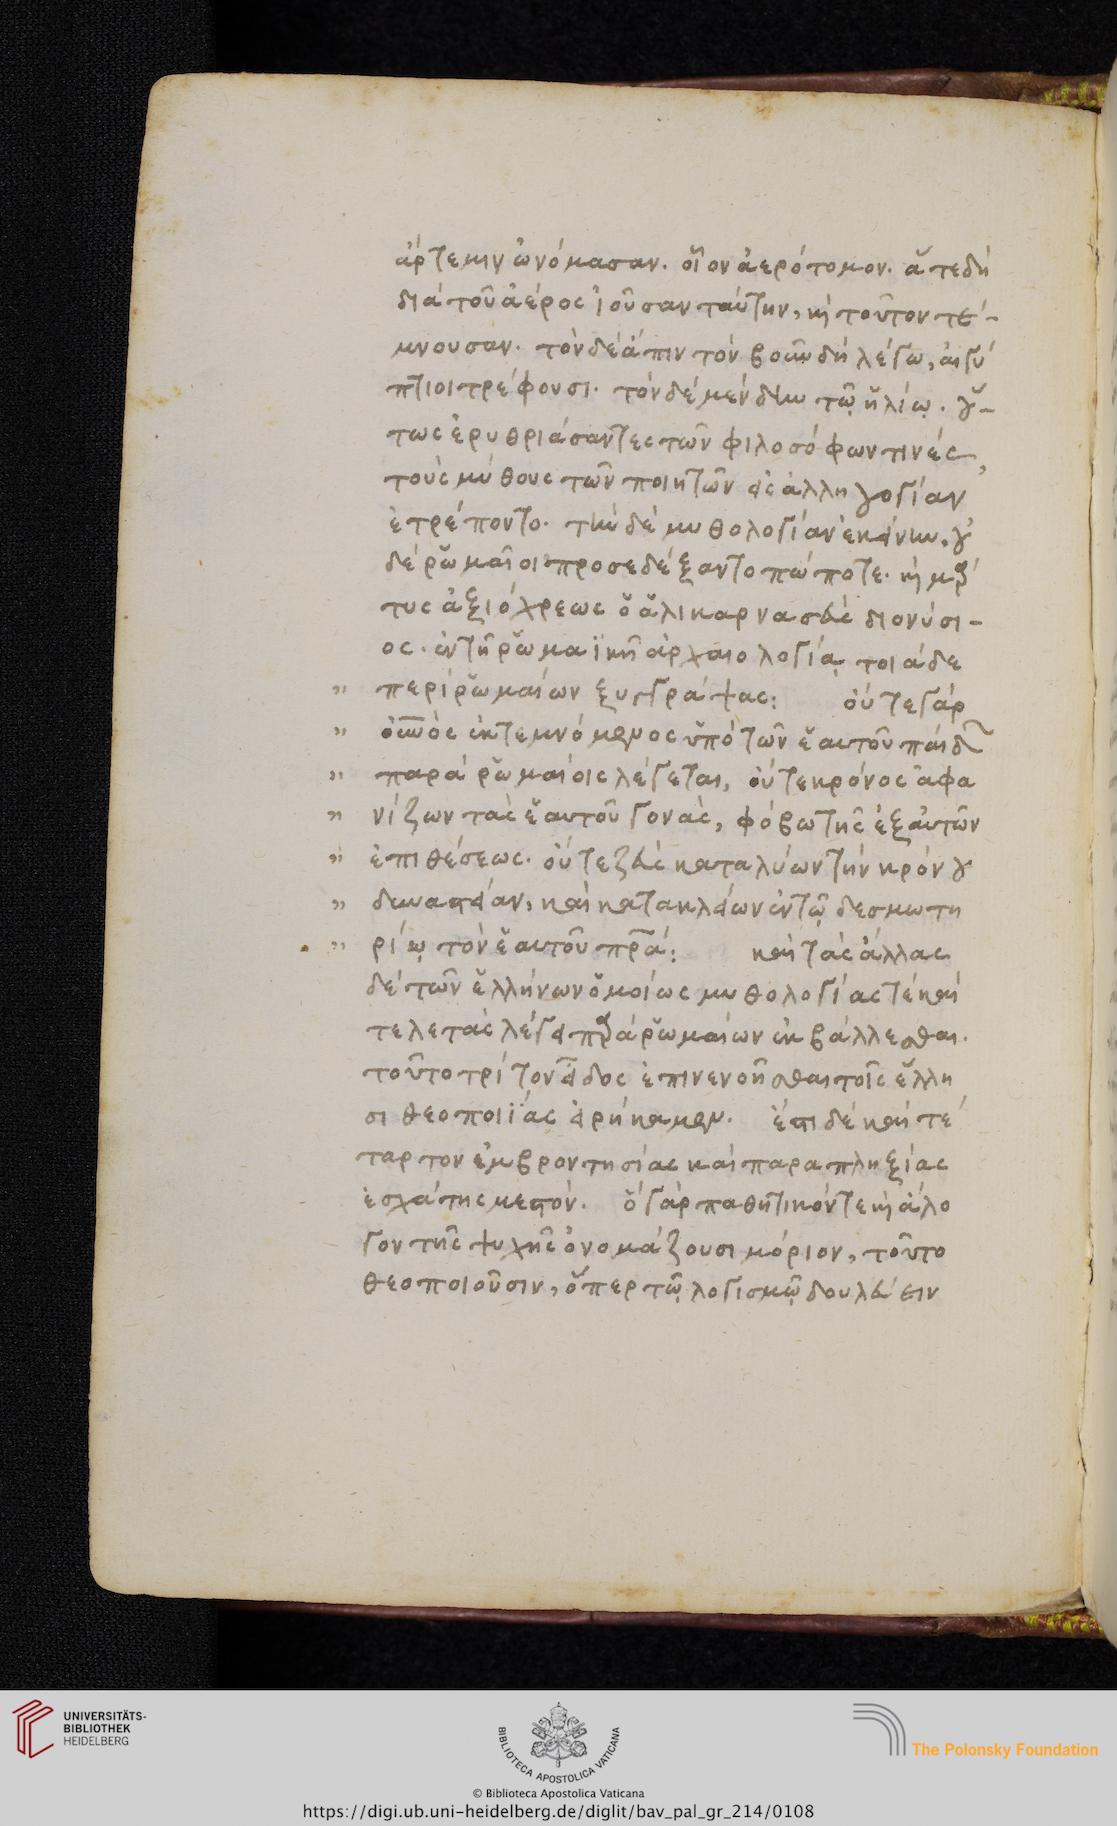 ἄρτεμιν ὠνόμασαν. οἷον ἀερότομον. ἅτε δὴ
διὰ τοῦ ἀέρος ἰοῦσαν ταύτην, καὶ τοῦτον τέ-
μνουσαν. τὸν δὲ ἄπιν τὸν βοῦν δὴ λέγω, αἰγύ
πτιοι τρέφουσι. τὸν δὲ μένδην τῷ ἡλίῳ. οὕ-
τως ἐρυθριάσαντες τῶν φιλοσόφων τινές,
τοὺς μύθους τῶν ποιητῶν εἰς ἀλληγορίαν
ἐτρέποντο. τὴν δὲ μυθολογίαν ἐκείνην. οὐ
δὲ ῥωμαῖοι προσεδέξαντο πώποτε. καὶ μάρ
τυς ἀξιόχρεως ὁ ἁλικαρνασεὺς διονύσι-
ος. ἐν τῇ ῥωμαϊκῇ ἀρχαιολογίᾳ τοιάδε
" περὶ ῥωμαίων ξυγγράψας: οὔτε γὰρ
" οὐνὸς ἐκτεμνόμενος ὑπὸ τῶν ἑαυτοῦ παίδων
" παρὰ ῥωμαίοις λέγεται, οὔτε κρόνος ἀφα
" νίζων τὰς ἑαυτοῦ γονὰς, φόβω τῆς ἐξ αὐτῶν
" ἐπιθέσεως. οὔτε ζεὺς καταλύων τὴν κρόνου
" δυναστείαν, καὶ κατακλείων ἐν τῷ δεσμωτη
" ρίῳ τὸν ἑαυτοῦ πρα: καὶ τὰς ἄλλας
δὲ τῶν ἑλλήνων ὁμοίως μυθολογίας τὲ καὶ
τελετὰς λέγει παρὰ ῥωμαίων ἐκβάλλεσθαι.
τοῦτο τρίτον εἶδος ἐπινενοῆσθαι τοῖς ἕλλη
σι θεοποιΐας εἰρήκαμεν. ἔστι δὲ καὶ τέ
ταρτον ἐμβροντησίας καὶ παραπληξίας
ἐσχάτης μεστόν. ὃ γὰρ παθητικόν τε καὶ ἄλο
γον τῆς ψυχῆς ὀνομάζουσι μόριον, τοῦτο
θεοποιοῦσιν, ὅπερ τῷ λογισμῷ δουλεύειν
UNIVERSITÄTS-
BIBLIOTHEK
HEIDELBERG
BIBLIOTECA APOSTOLICA VATICANA
The Polonsky Foundation
© Biblioteca Apostolica Vaticana
https://digi.ub.uni-heidelberg.de/diglit/bav_pal_gr_214/0108